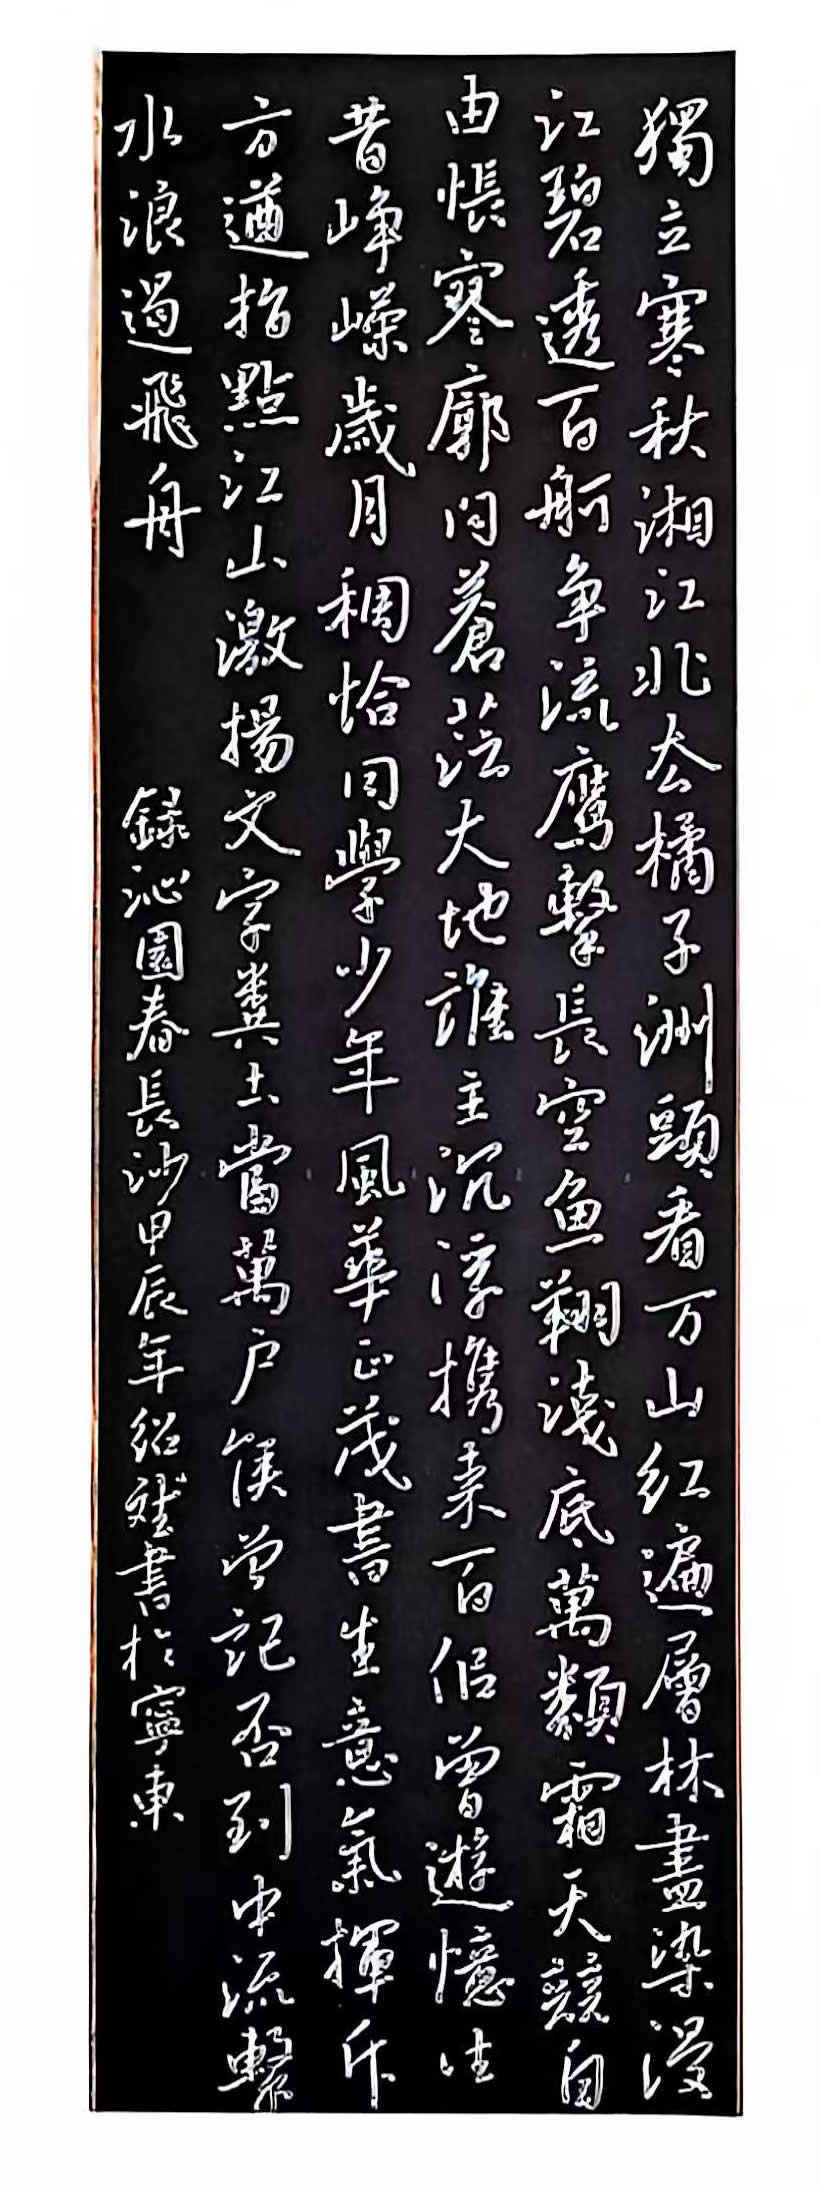 獨立寒秋湘江北去橘子洲頭看万山紅遍層林盡染漫
江碧透百舸争流鹰擊長空魚翔淺底萬類霜天競自
由悵寥廓问蒼茫大地誰主沉浮携来百侣曾遊憶往
昔峥嶸歲月稠恰同學少年風華正茂書生意氣揮斥
方遒指點江山激揚文字糞土當萬户侯曾記否到中流擊
水浪遏飛舟 録沁園春長沙甲辰年紹斌書於寧東